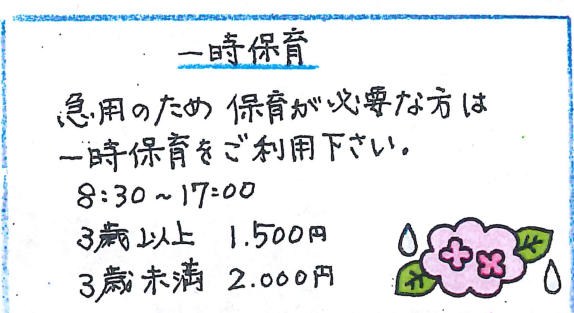 一時保育
急用のため 保育が必要な方は
一時保育をご利用下さい。
8:30~17:00
3歳以上 1.500円
3歳未満 2.000円